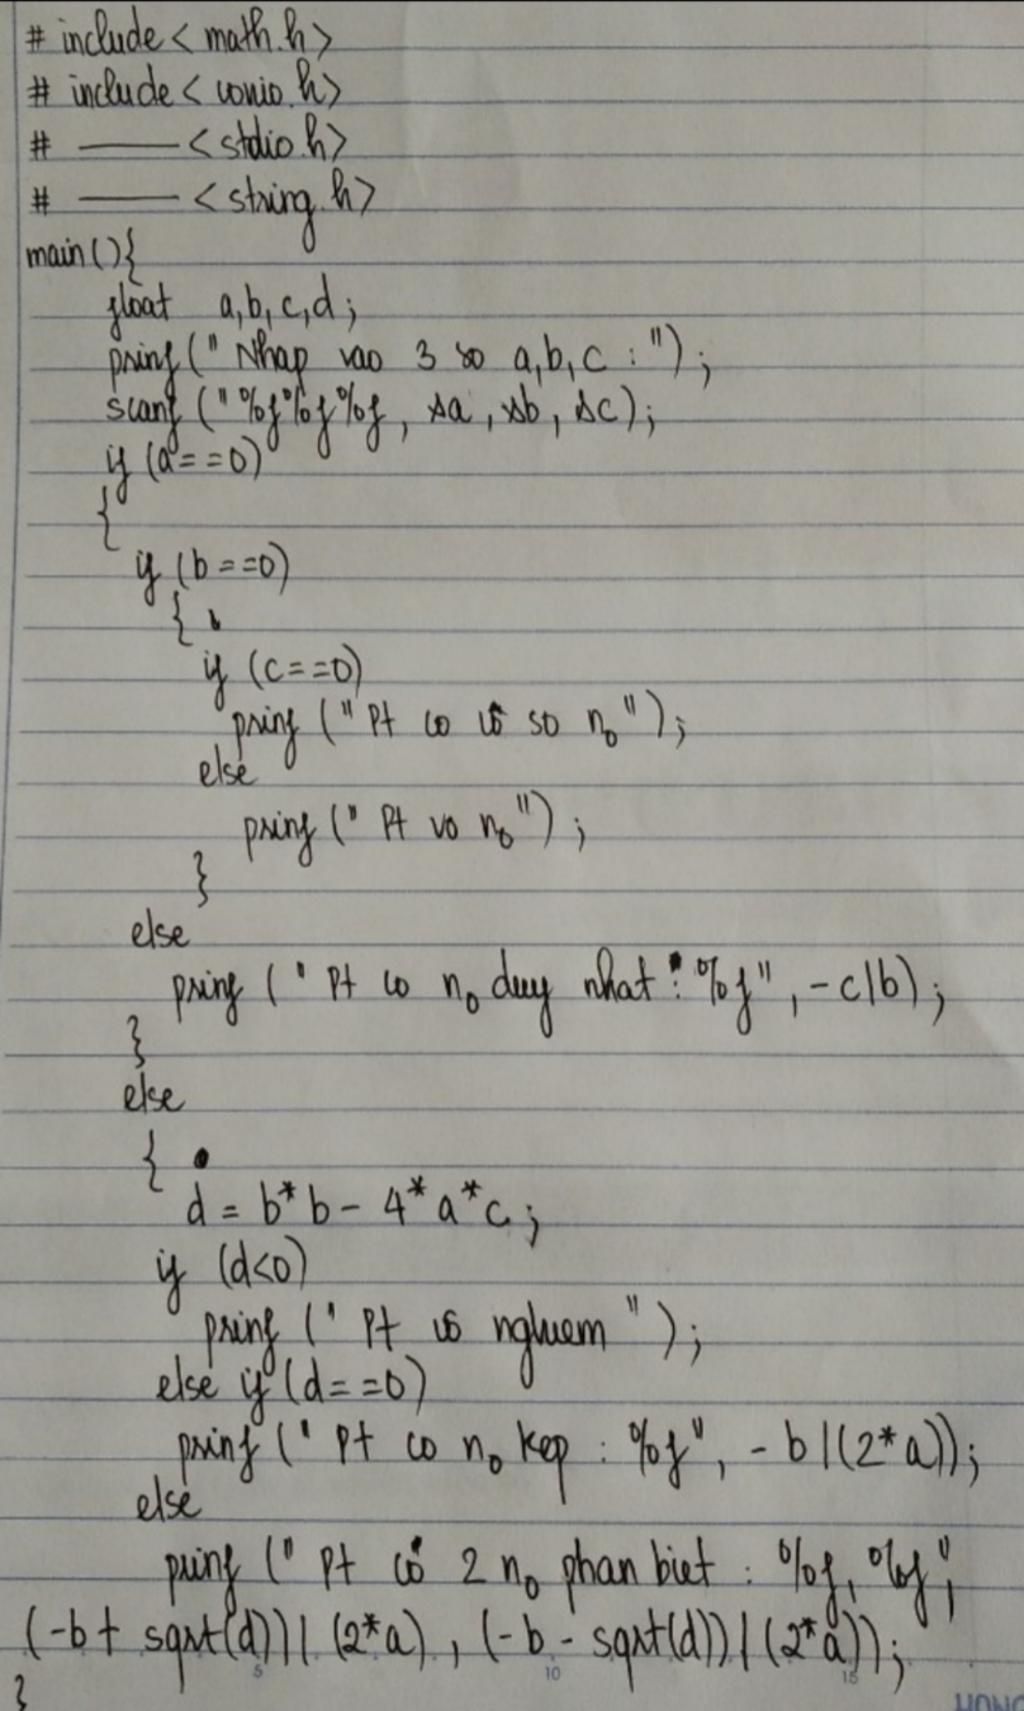 # include < math.h>
# include < conio.h>
# —— < stdio.h>
# —— < string.h>
main(){
float a,b,c,d;
prinf (" Nhap vao 3 so a,b,c : ");
scanf ("%f%f%f, &a, &b, &c);
if (a==0)
{
if (b==0)
{
if (c==0)
prinf (" Pt co vô so n₀ ");
else
prinf (" Pt vo n₀");
}
else
prinf (" Pt co n₀ duy nhat : %f", -c/b);
}
else
{
d = b*b - 4*a*c;
if (d<0)
prinf (" Pt vô nghiem ");
else if (d==0)
prinf (" Pt co n₀ kep : %f", - b /(2*a));
else
prinf (" Pt có 2 n₀ phan biet : %f, %f",
(-b + sqrt(d))/(2*a), (-b - sqrt(d))/(2*a));
}
5 10 15
HONG